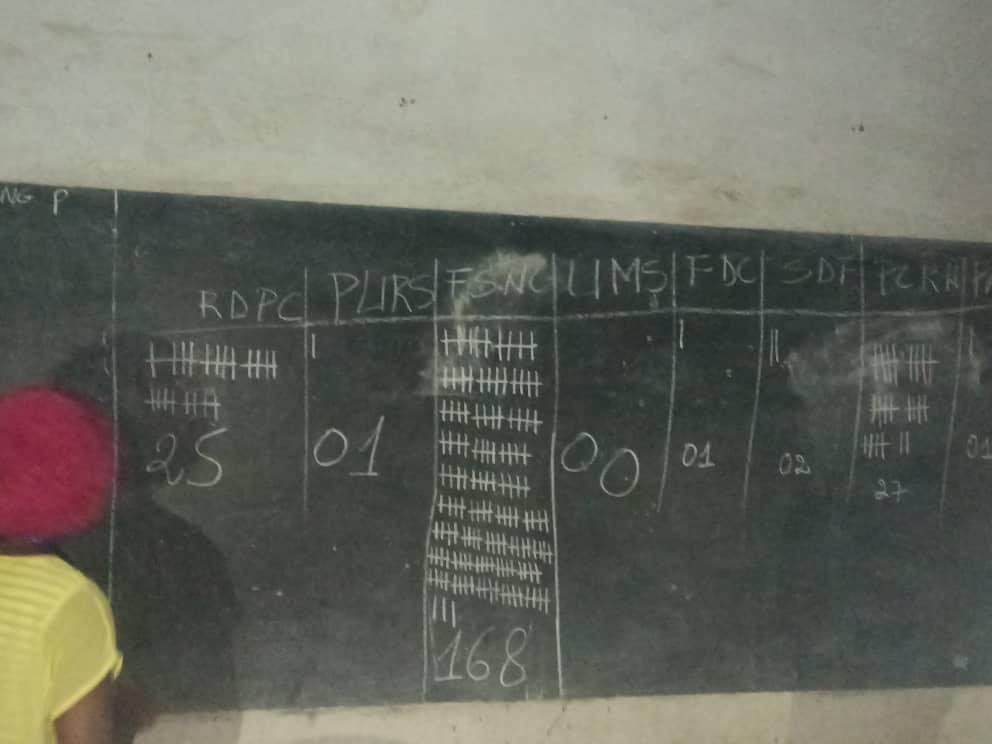 NG P
RDPC PURS FSNC UMS FDC SDF PCRN
25 01 168 00 01 02 27 01